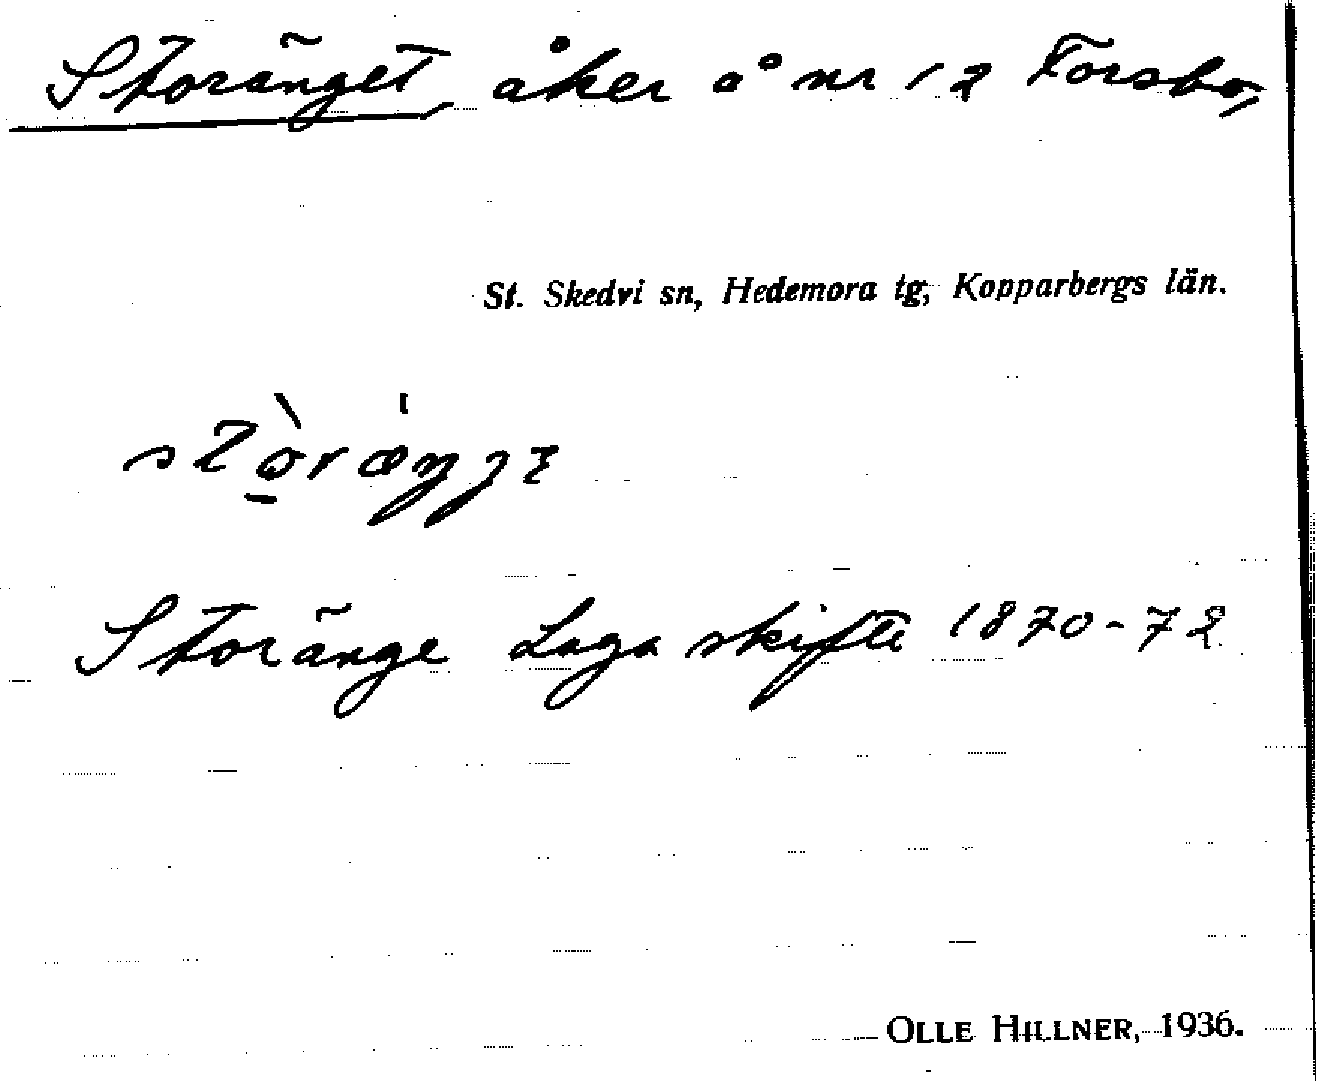 Storänget, åker å nr 12 Forsbo,
St. Skedvi sn, Hedemora tg, Kopparbergs län.
Storänge Laga skifte 1870-72
OLLE HILLNER, 1936.